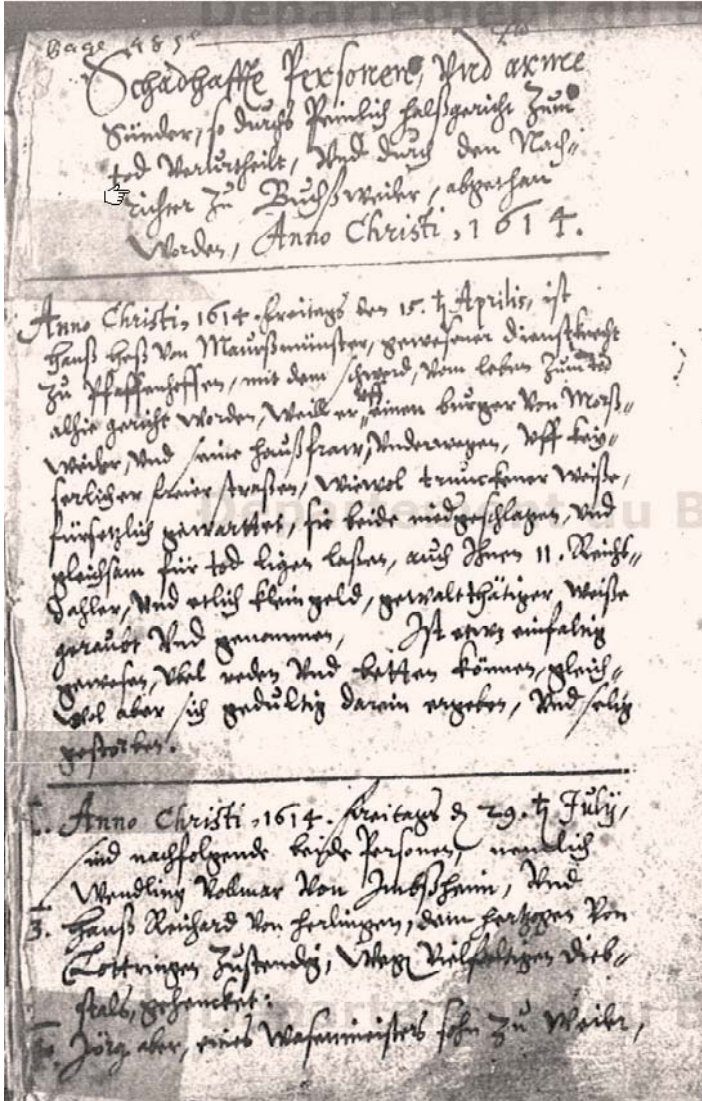 Departement du B
Page 485e
Schadhaffte Personen, Vnd arme
Sünder, so durchs Peinlich halßgericht Zum
tod Verurtheilt, Vnd durch den Nach=
richter Zu Buchßweiler, abgethan
Worden, Anno Christi, 1614.
Anno Christi, 1614. freitags den 15. t. Aprilis, ist
Hanß Heß Von Maurßmünster, gewesener dienstknecht
Zu Pfaffenhoffen, mit dem schwerd, Vom leben Zum tod
alhie gericht worden, Weill er, uff einen burger Von Morß=
weiler, Vnd seine haußfraw, Vnderwegen, Vff key=
serlicher freier straßen, wiewol trunckener Weiße,
fürsetzlich gewarttet, sie beide nidgeschlagen, Vnd
Departement du B
gleichsam für tod ligen laßen, auch Ihnen 11. Reichs=
dahler, Vnd etlich klein geld, gewaltthätiger Weiße
geraubt Vnd genommen, Ist etwz einfaltig
gewesen, Vbel reden Vnd betten können, gleich=
Wol aber sich gedultig darein ergeben, Vnd selig
gestorben.
Anno Christi, 1614. freitags d. 29. t. July,
sind nachfolgende beyde Personen, nemlich
Wendling Vollmar Von Imbßheim, Vnd
3. Hanß Reichard Von herlingen, dem hertzogen Von
Lottringen Zustendig, Wegen Vielfeltigen dieb=
stals, gehencket:
Departement du B
Jörg aber, eines Wasenmeisters sohn Zu Weiler,